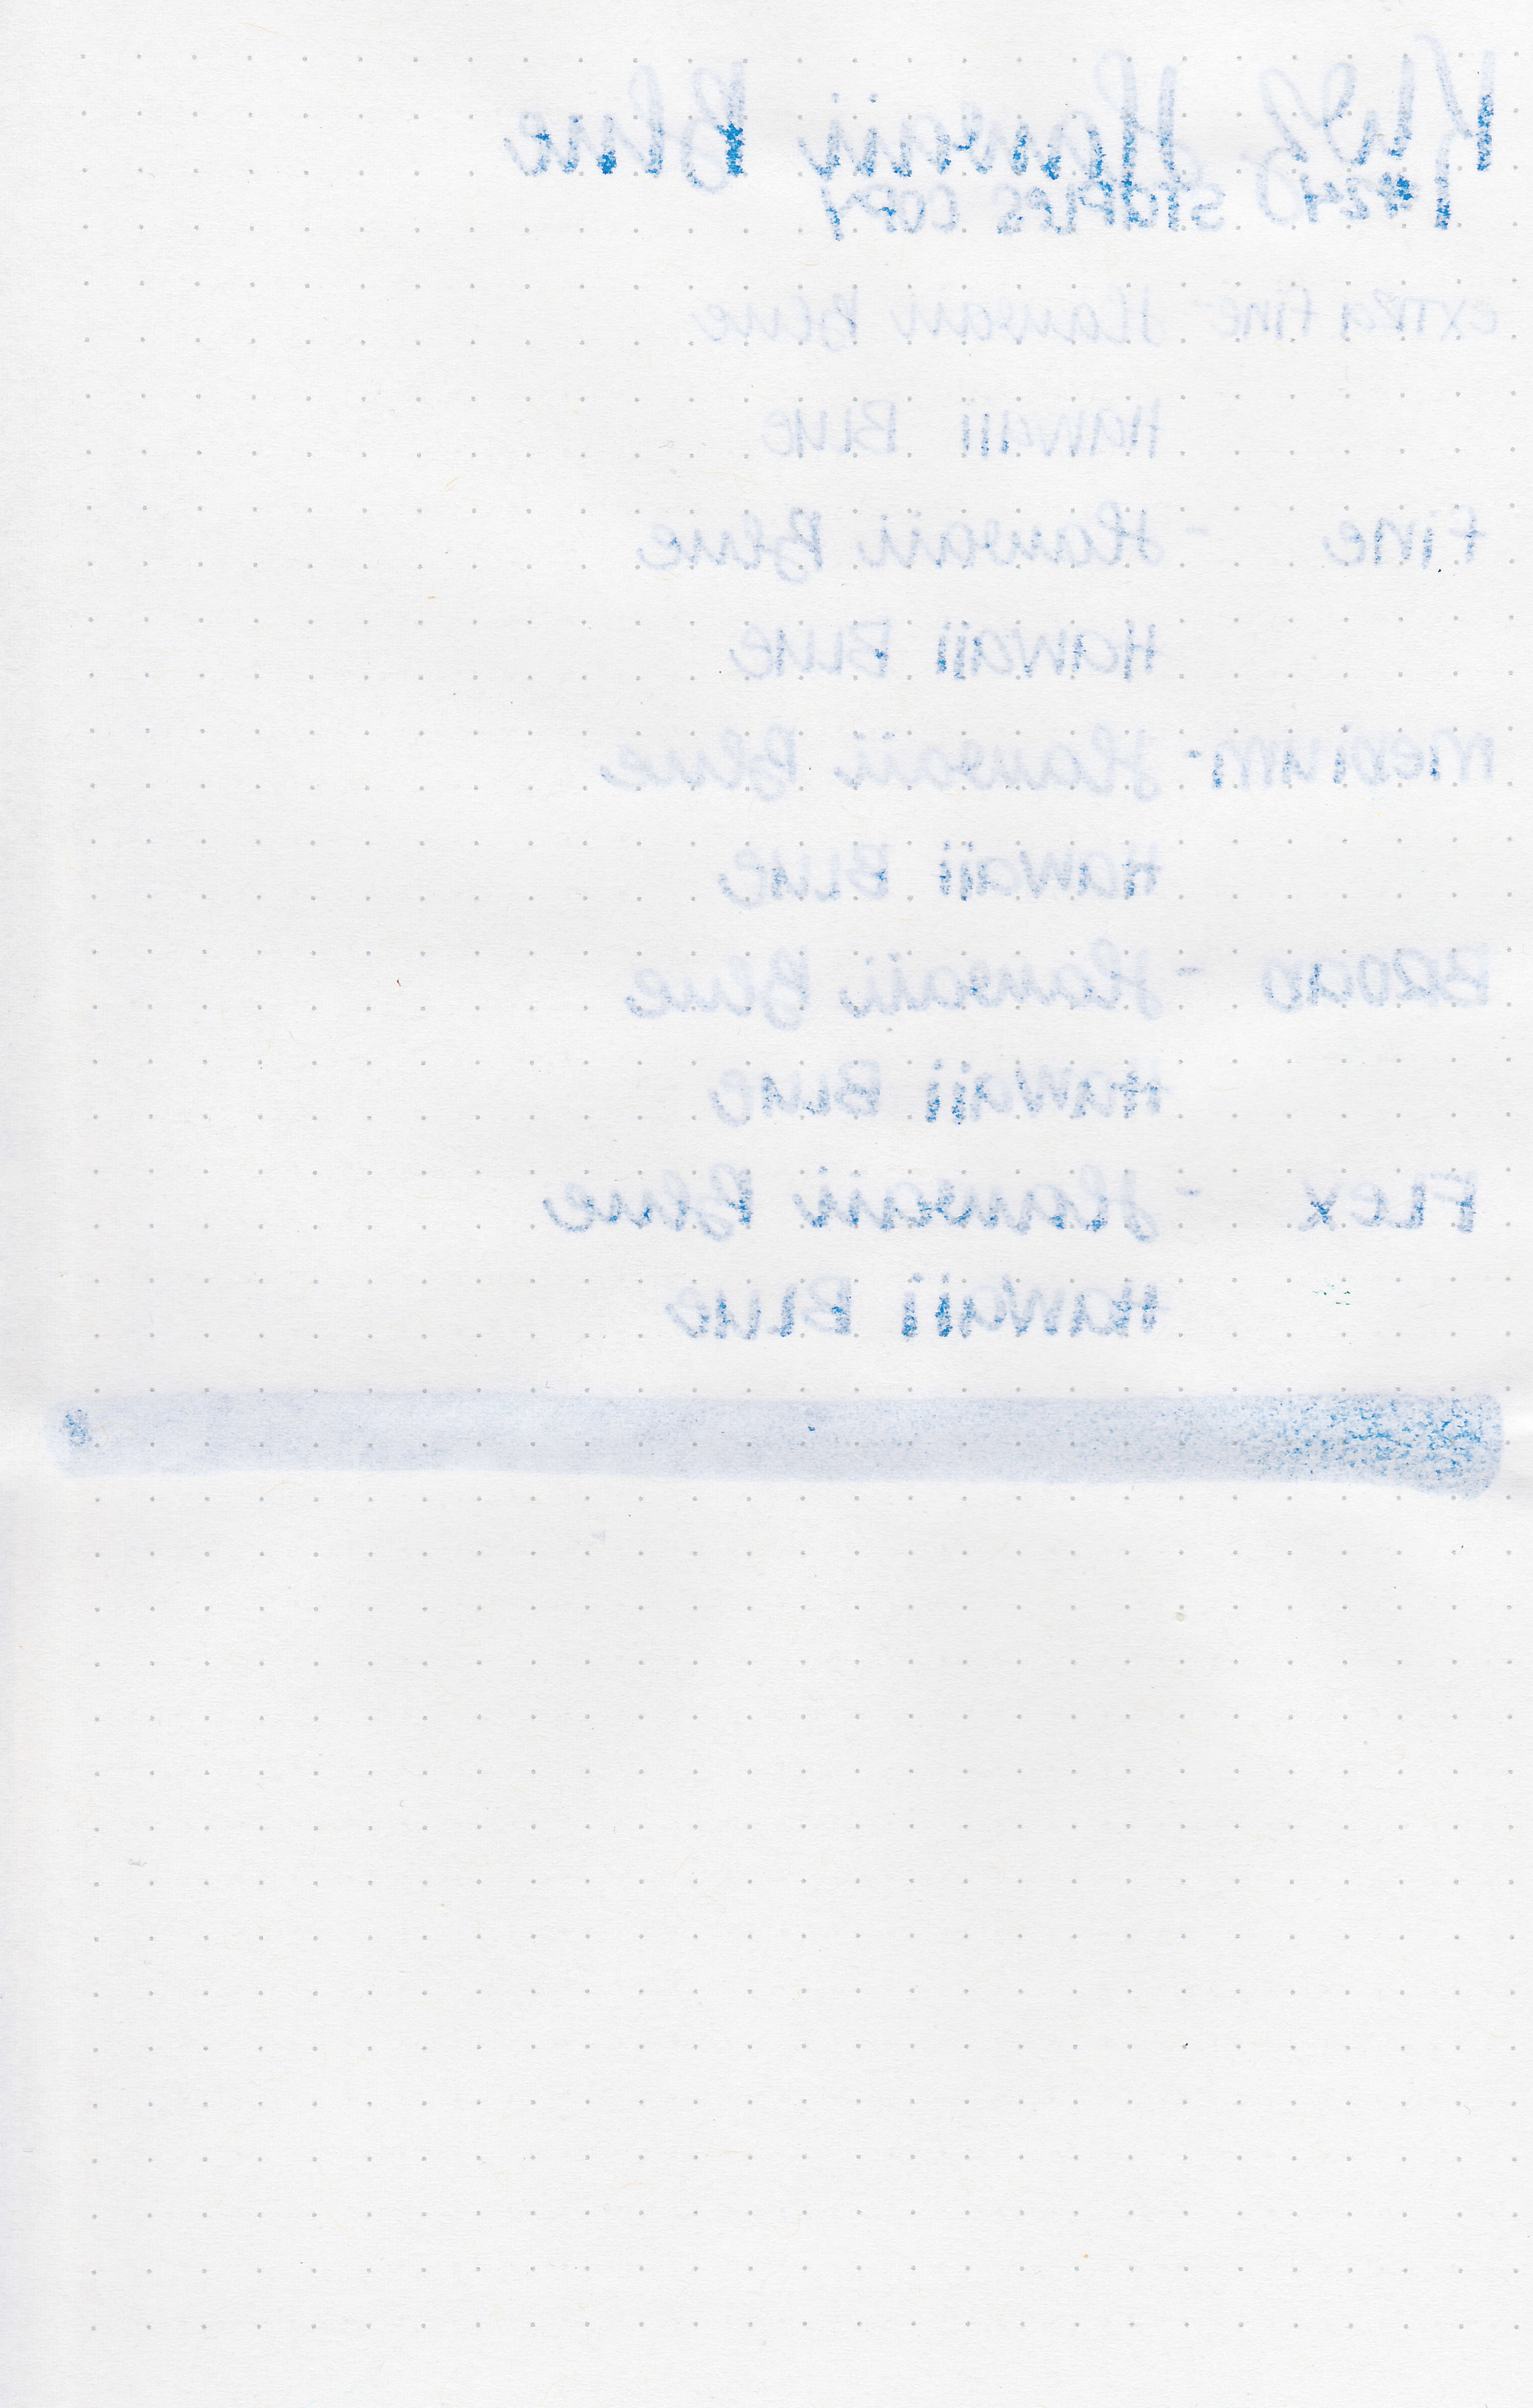 KWZ Hawaii Blue
#24 Staples Copy
Extra Fine - Hawaii Blue
Hawaii Blue
Fine - Hawaii Blue
Hawaii Blue
Medium - Hawaii Blue
Hawaii Blue
Broad - Hawaii Blue
Hawaii Blue
Flex - Hawaii Blue
Hawaii Blue